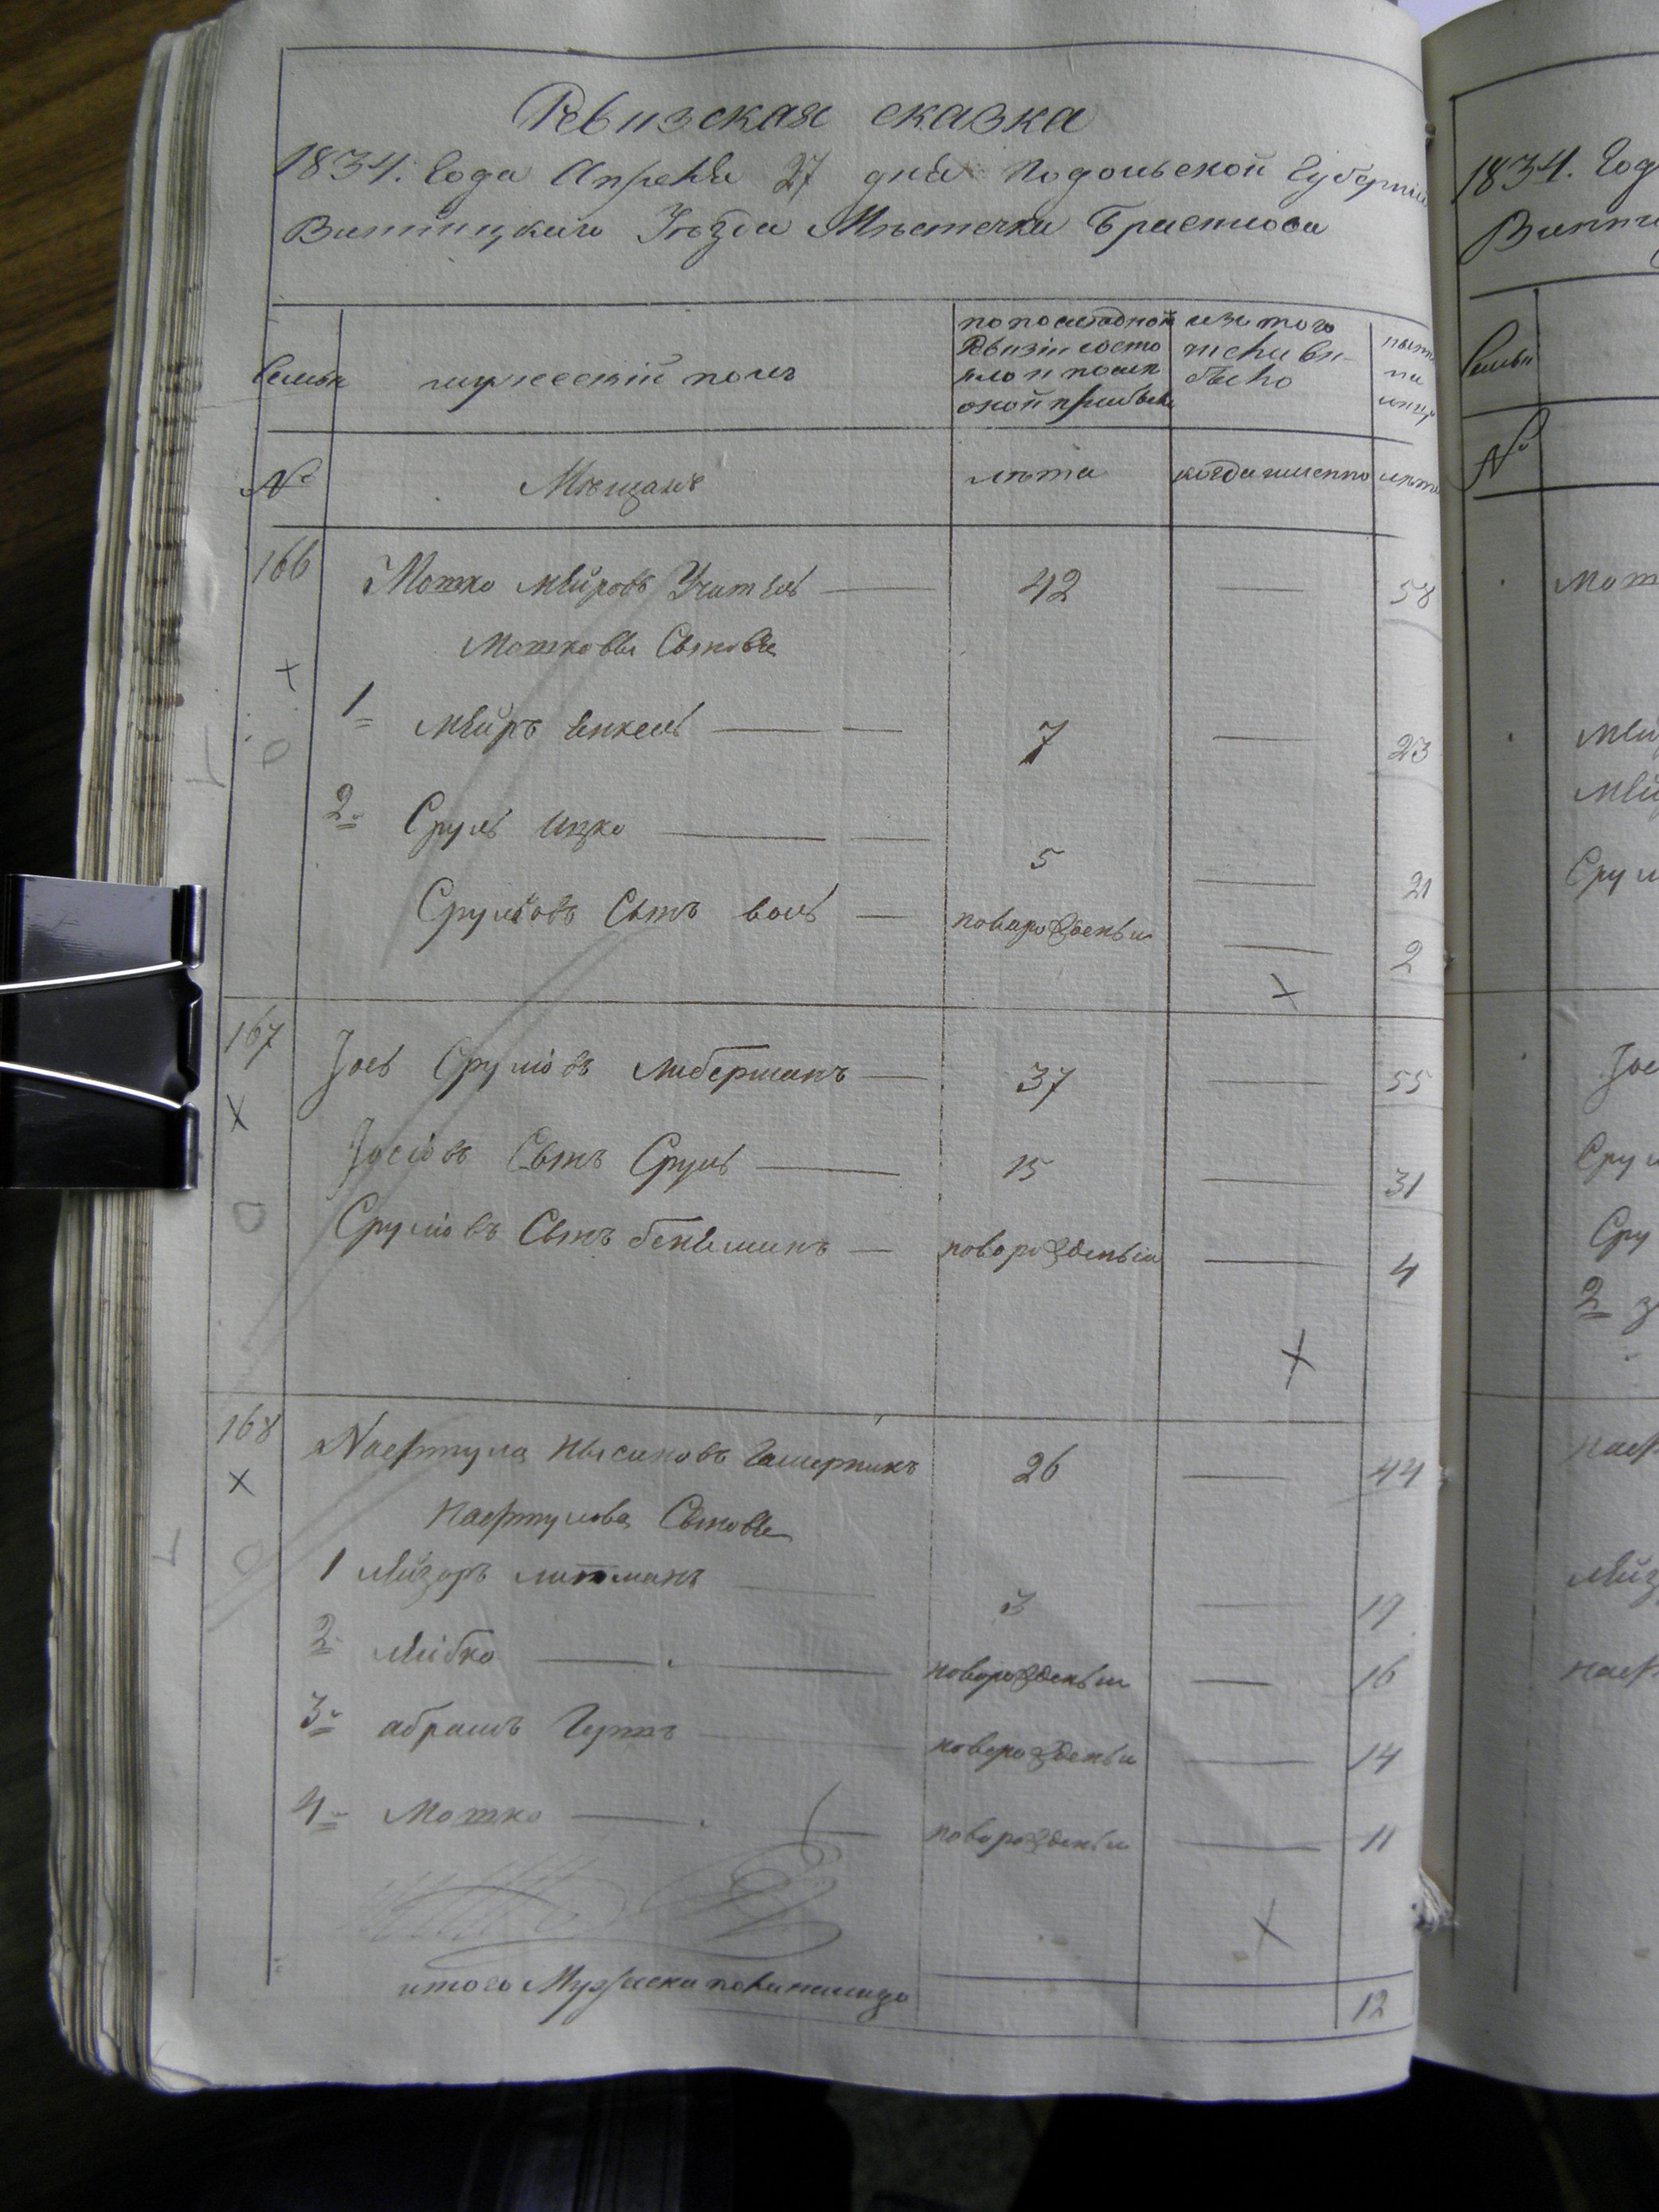 Ревизская сказка
1834. Года Апреля 27 дня Подольской Губернии
Винницкаго Уѣзда Мѣстечка Браилова
Семьи
мужескій полъ
по последной
Ревизіи состо
яло и посля
оной прибыло
изъ того
числа вы-
было
ныне
на
лицо
№
Мѣщанъ
лѣта
когда именно
лѣта
166 Мотко Мейровъ Учитель 42 58
Мотковы Сыновья
1 Мейръ Янкель 7 23
2 Сруль Ицко 5 21
Срульовъ Сынъ Воль новорожденый 2
167 Іось Срульовъ Либерманъ 37 55
Іосіовъ Сынъ Сруль 15 31
Сруліовъ Сынъ Беніаминъ новорожденый 4
168 Нафтула Нысиновъ 26 44
Нафтулова Сыновья
1 Лейзоръ Литманъ 3 17
2 Лейбко новорожденый 16
3 Абрамъ Герть новорожденый 14
4 Мотко новорожденый 11
итого Мужеска пола налицо 12
1834. Год
Винни
Семьи
№
Мотк
Мей
Мей
Срул
Іос
Срул
Сру
2
Нафт
Лейз
Нафт